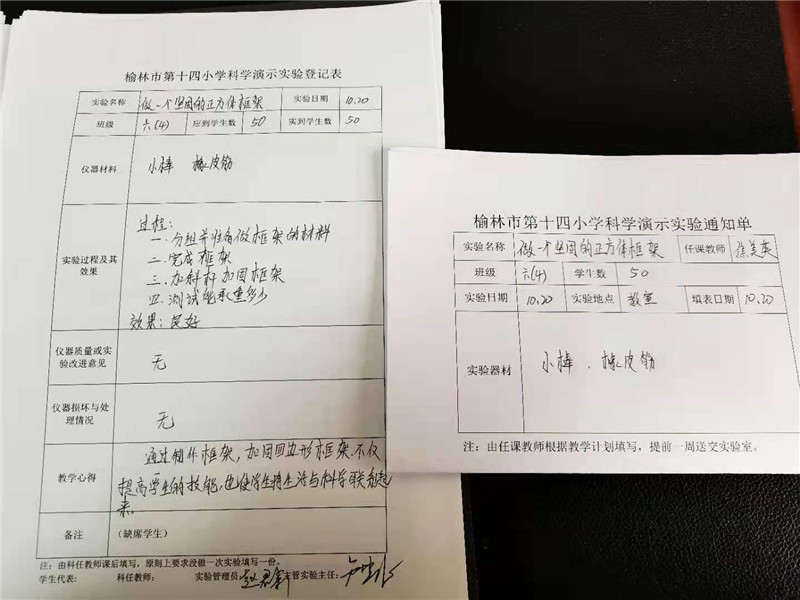 榆林市第十四小学科学演示实验登记表
实验名称 做一个坚固的正方体框架 实验日期 10.20
班级 六(4) 应到学生数 50 实到学生数 50
仪器材料 小棒 橡皮筋
实验过程及其效果
过程:
一.分组并准备做框架的材料
二.完成框架
三.加斜杆加固框架
四.测试能承重多少
效果:良好
仪器质量或实验改进意见 无
仪器损坏与处理情况 无
教学心得
通过制作框架,加固四边形框架.不仅
提高学生的技能,也使学生将生活与科学联系起
来.
备注 (缺席学生)
注:由科任教师课后填写,原则上要求没做一次实验填写一份。
学生代表: 科任教师: 实验管理员: 主管实验主任:
榆林市第十四小学科学演示实验通知单
实验名称 做一个坚固的正方体框架 任课教师
班级 六(4) 学生数 50
实验日期 10.20 实验地点 教室 填表日期 10.20
实验器材 小棒、橡皮筋
注:由任课教师根据教学计划填写,提前一周送交实验室。